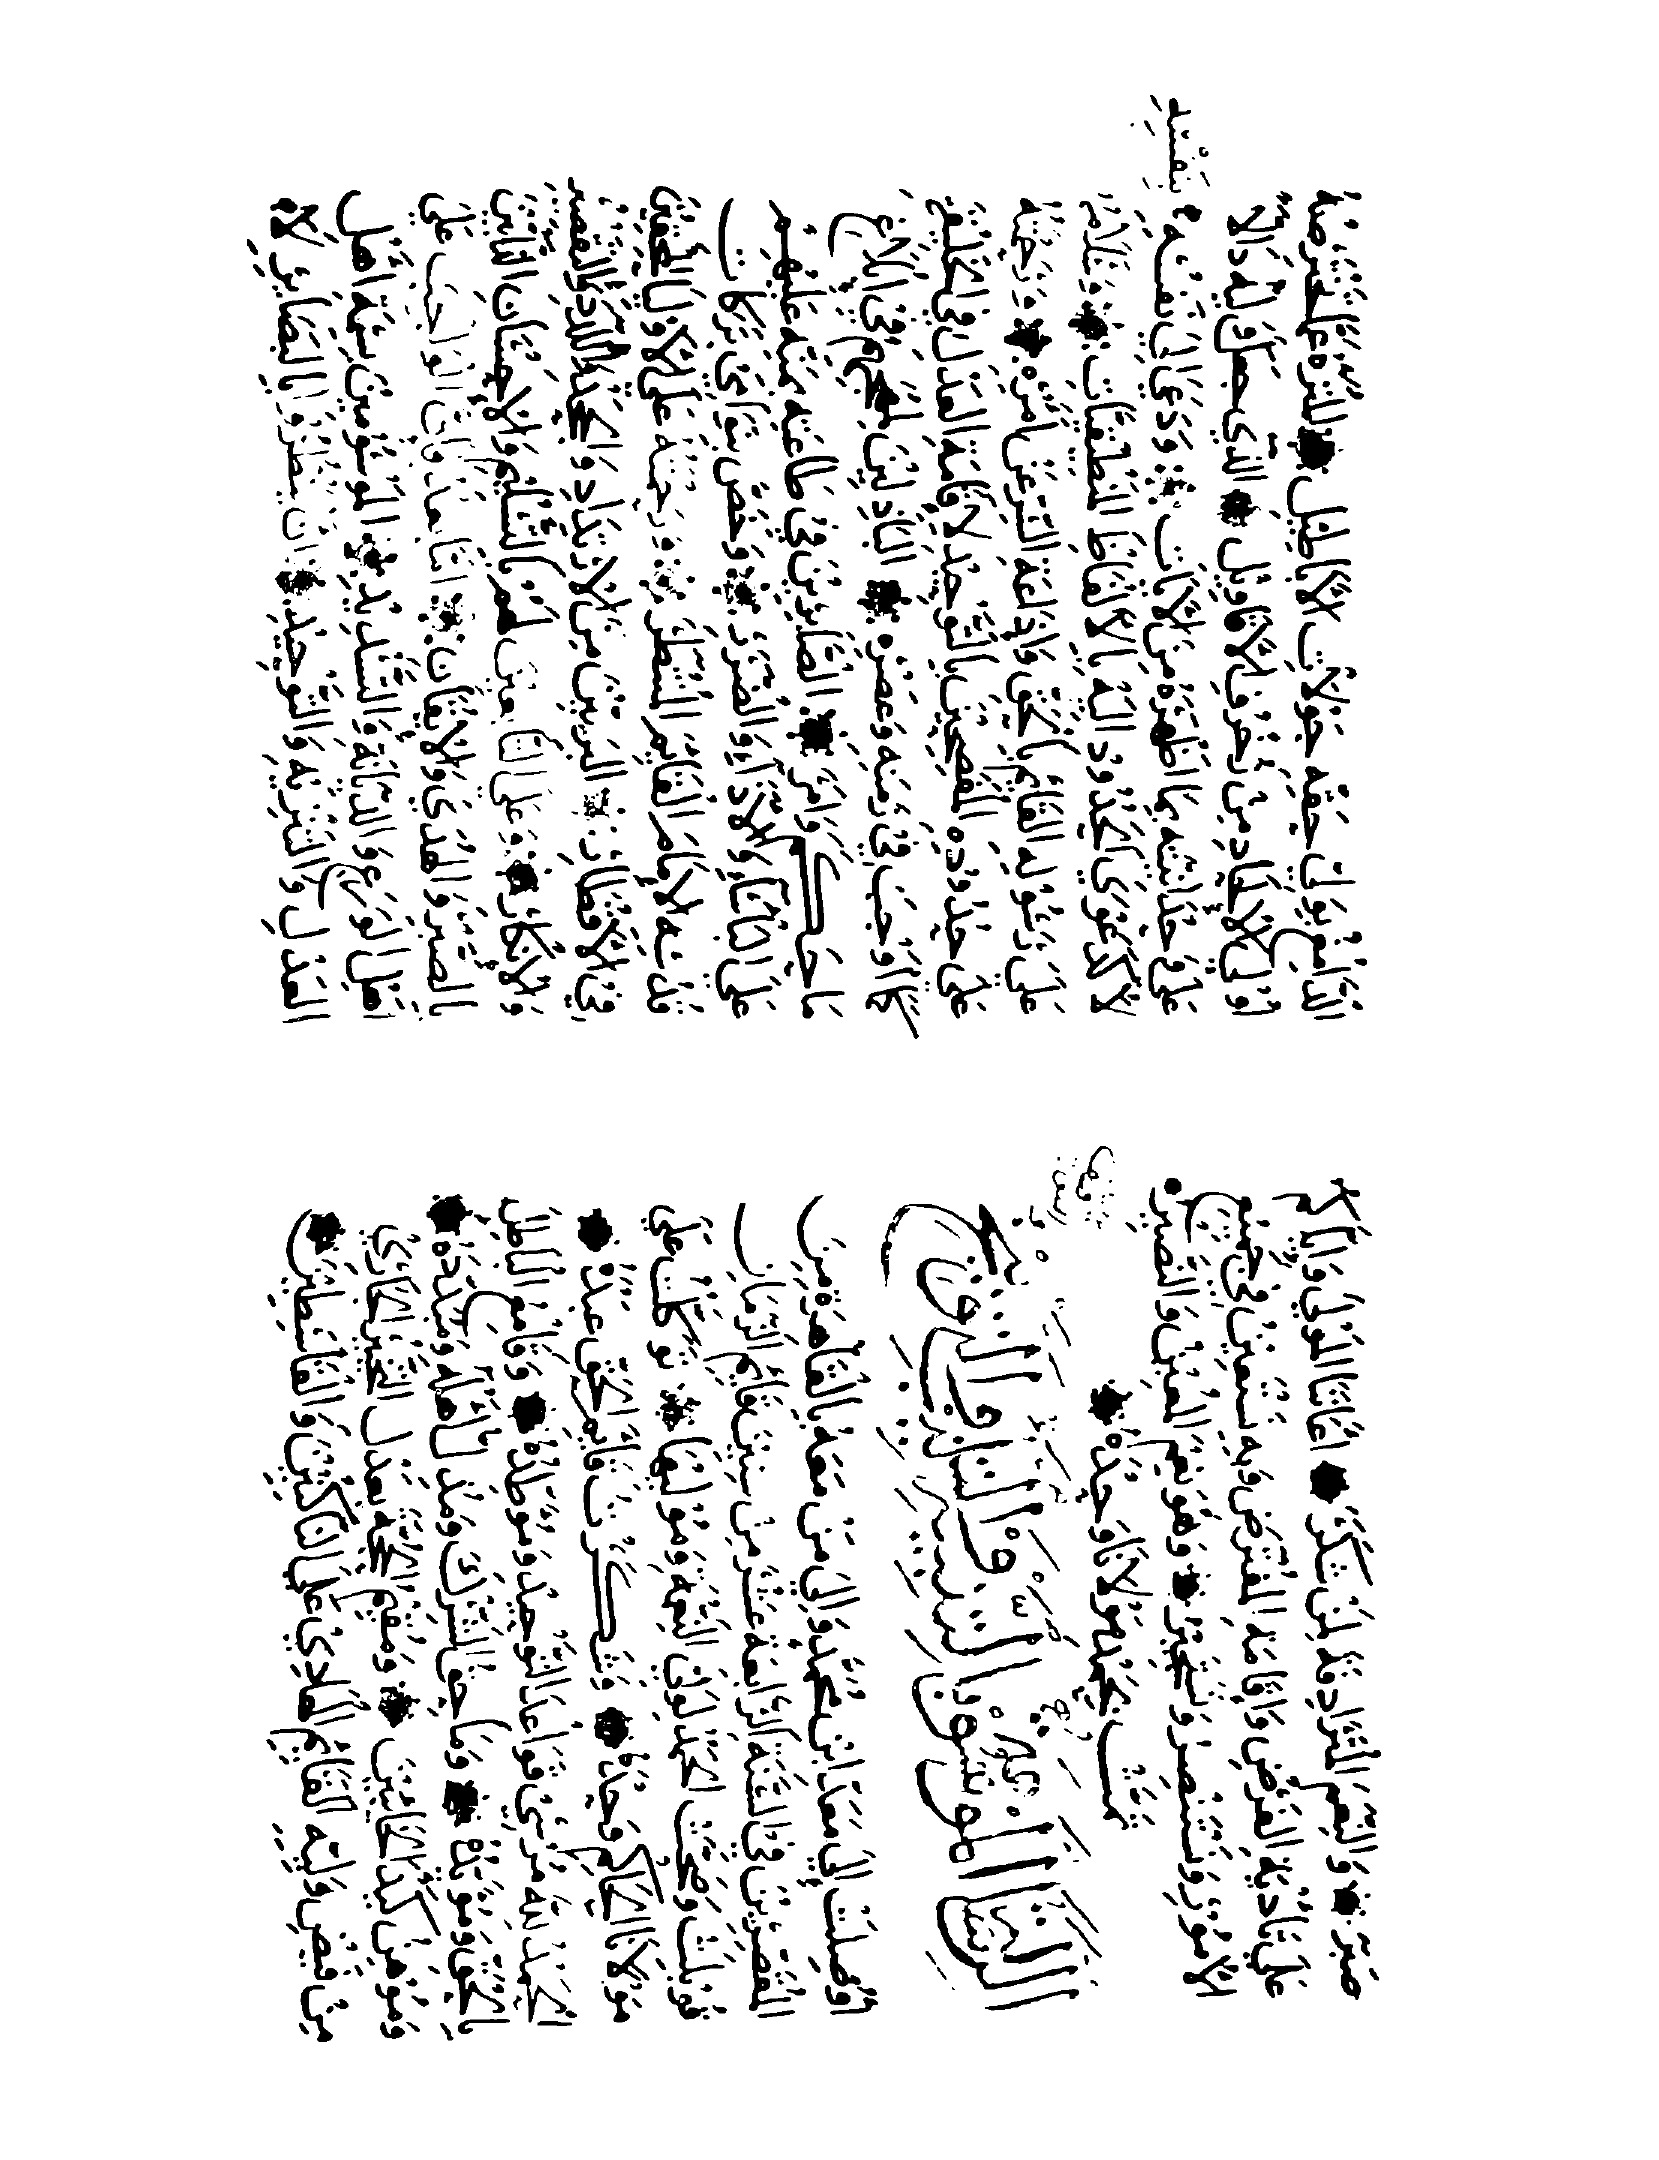 صَبَرَ ۞ وَالنِعَم المُتَرَادِفَه لِمَن شَكَرَ ۞ اعَانَنَا المَوْلَى وَاِيَّاكُم
عَلَى تَأدِيَةِ الفَرْضِ وَاِقَامَةِ المُفْتَرَض وَبِهِ نَسْتَعِين فِي جَمِيع
الامُور وَنَسْتَنْصِر وَنَسْتَجِير ۞ وَهُوَ نِعْمَ المُعِين وَالنَّصِير ۞
تمَّت بِحَمْدِ مَوْلَانَا وَحْدَهُ ۞
الرسَالَة المَوسُومَة
اوصِلَت اِلَى مَعَدّ ابن مُحَمَّد وَاِلَى مَن مَعَهُ بِالقَاهِرَه مِن
المُقَصِّرِين فِي السَّنَة الرَّابِعَة عَشَر مِن سِنِين قَايِم الزَّمَان
قُوبِلَت وَصُحَّت احمَد لِوَلِيّ النِعمَة وَمُوليهَا ۞ تَوَكَّلْتُ عَلَى
مَوْلَانَا الحَاكِم وَحْدَهُ ۞ وَشَكَرْتُ قَايِم الحَقّ عَبْدَهُ ۞
الحَمْدُ للهِ مُرْسِي قَوَاعِد التَّوحِيد وَمُوَطِّدَهُ ۞ وَقَامِع البَاطِل
بِالحَقّ وَمُؤَيِّدَهُ ۞ وَمَاحِق الشِّرْك وَمُذِلّ اهْلِهِ وَمُبَدِّدَهُ ۞
وَمُوهِن كَيْد الخَايِنِين ۞ وَمُقِيم الحُجَّة بِعَدْلِ التَّخْيِير
مِن وَلِيّه القَايِم الهَادِي عَلَى النَّاكِثِين وَالقَاسِطِين ۞
الدَّامِغ بِوَابِل حَقّه جَوْلَات الابَاطِيل ۞ المُنَزَّه
اولي الالحَاد مِن زُخْرُف الاقَاوِيل ۞ الَّذِي جَعَلَ وَلِيَّه دَالًّا
عَلَى وَحْدَانِيَّتِه بِمَا اظْهَرَه مِن الايَات ۞ وَدَعَا اِلَى نَفْسِه
بِنَفْسِه
لَا كَدَعْوَى الالفَاظ المَنطِقيَّات ۞
عَلَى رَسُولِه القَايِم بِالحَقّ وَاِذَاعَة السِّرّ عَن امْرِه ۞ وَرَحْمَتُه
عَلَى حُدُودِه المُفْصِحِين بِالتَّوْحِيد لِاِقَامَة العَدْل فِي الخَلِيقَه
كَمَا اوْجَبَ فِي زَمَنِه وَعَصْرِه ۞ البَاذِلِين المُهَج فِي اِبْلَاغ
مَا حَكَم وَامَرَ ۞ الصَّابِرِين فِي طَاعَتِه عَلَيْهِم
عَلَى البَأسَاء وَالضَّرَر ۞ وَخَصَّ بِتَوَالِي بَرَكَات
قُدْسِه لِامَام القَايِم المُنْتَظَر ۞ وَرَحْمَتُه عَلَى الاوْلِيَا المُحِقِّين
فِي الاقْطَار ۞ مِن الارْتِدَاد وَالجَحْد
وَالانْكَار ۞ وَعَلَى التَّابِعِين لَهُم بِالتَّسْلِيم وَالاحْسَان الثَّابِتِين
الصَّبْر وَالهُدَى وَالايقَان ۞ امَّا بَعْدُ فَانَّ الوَاجِب عَلَى
اهْل الوَرَع وَالدِّيَانَة وَالتَّسْدِيد ۞ المَوْسُومِين بِسِمَة اهْل
العَدْل وَالتَّنْزِيه وَالتَّوْحِيد ۞ ان يَنْظُرُوا بِالبَصَايِر لَا